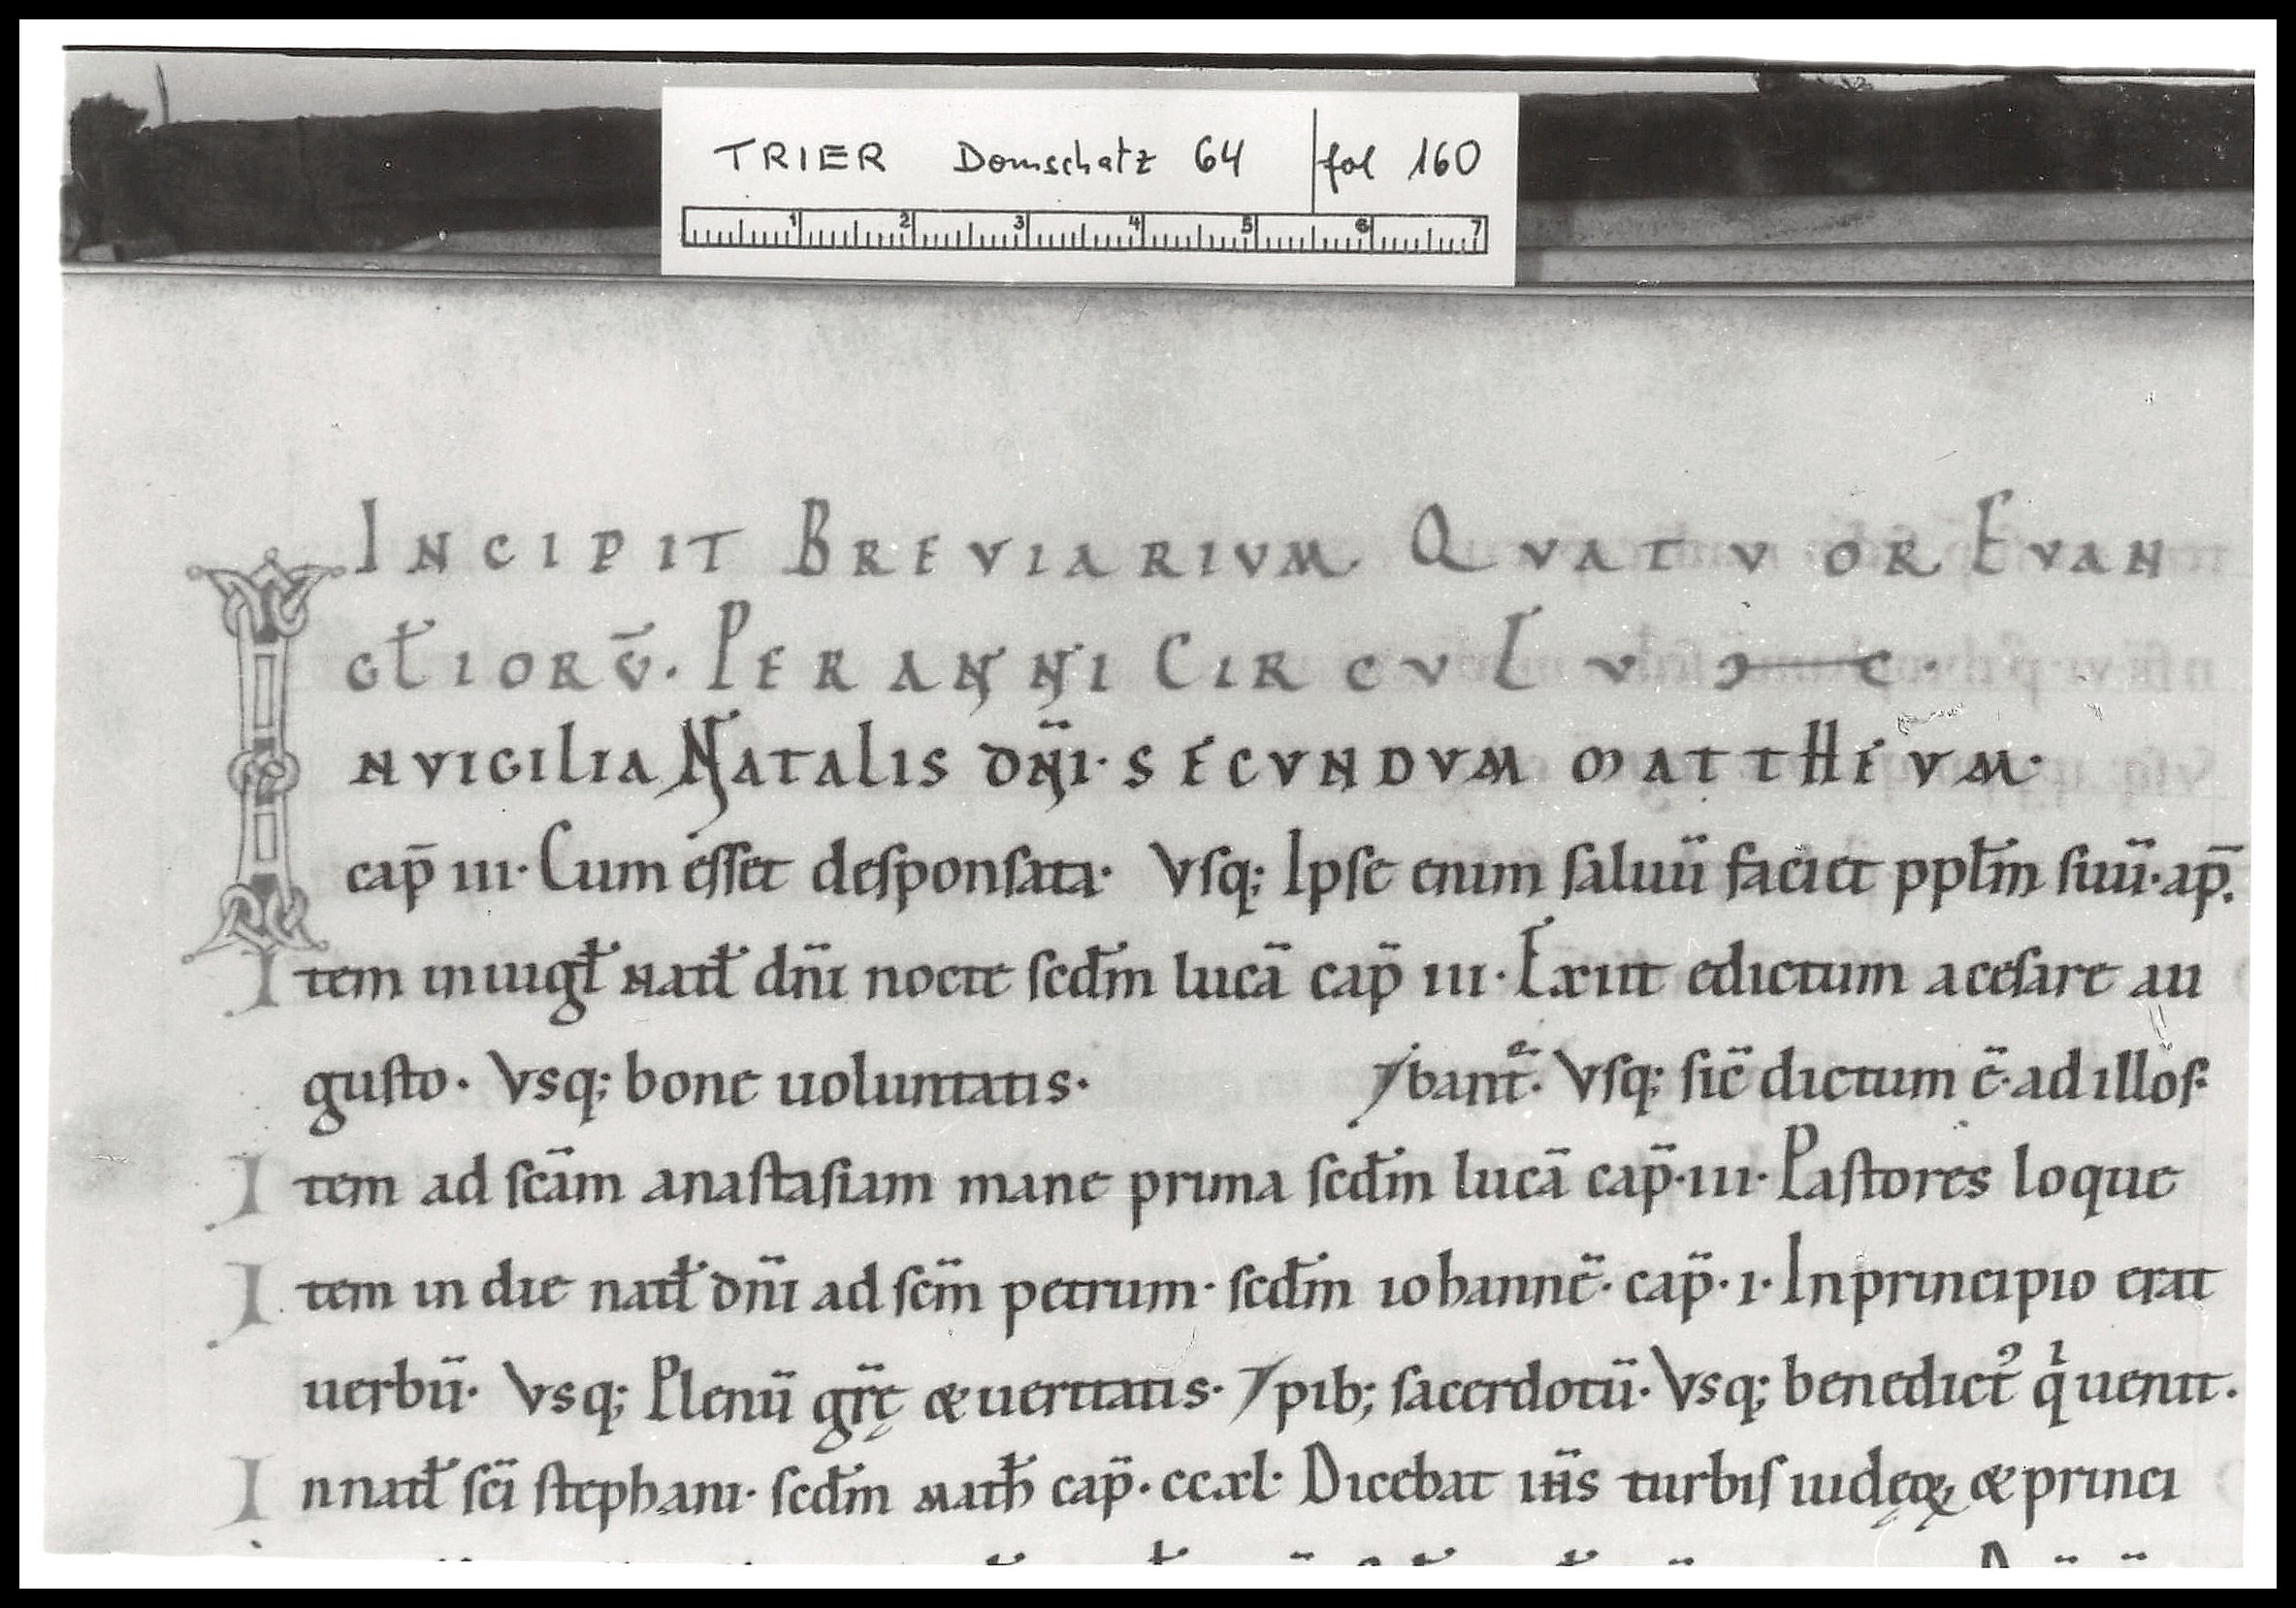 TRIER Domschatz 64 | fol 160
1 2 3 4 5 6 7
INCIPIT BREVIARIVM QVATVOR EVAN
GŁIORV̄. PER ANNI CIRCVLV
IN VIGILIA NATALIS DN̄I· SECVNDVM MATTHEVM·
cap̄ iii· Cum esset desponsata· Vsq; Ipse enim saluū faciet ppl̄m suū· ap̄.
Item in uigł natł dn̄i nocte scd̄m lucā cap̄ iii· Exiit edictum a cesare au
gusto· Vsq; bone uoluntatis·
bant̄ᵉ· Vsq; sic̄ dictum ē· ad illos·
Item ad sc̄am anastasiam mane prima scd̄m lucā cap̄·iii· Pastores loque
Item in die natł dn̄i ad sc̄m petrum· scd̄m iohannē· cap̄·i· In principio erat
uerbū· Vsq; Plenū gr̄ę & ueritatis· pib; sacerdotū· Vsq; benedict᾿ qⁱ uenit.
In natł sc̄i stephani· scd̄m math̄ cap̄·ccxl· Dicebat ih̄s turbis iudęoꝝ & princi